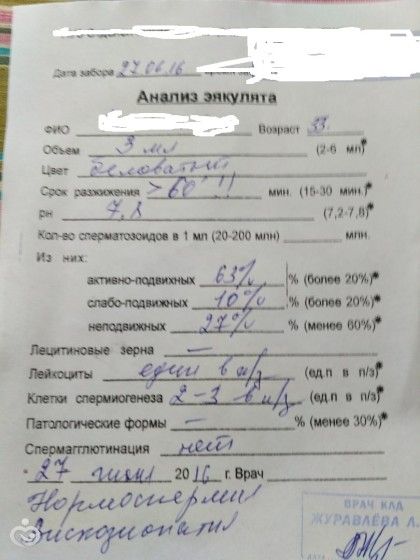 Дата забора 27.06.16
Анализ эякулята
ФИО Возраст 33
Объем 3 мл (2-6 мл)*
Цвет беловатый
Срок разжижения >60' !! мин. (15-30 мин.)*
рн 7,8 (7,2-7,8)*
Кол-во сперматозоидов в 1 мл (20-200 млн) млн.
Из них:
активно-подвижных 63% % (более 20%)*
слабо-подвижных 10% % (более 20%)*
неподвижных 27% % (менее 60%)*
Лецитиновые зерна —
Лейкоциты един в п/з (ед.п в п/з)*
Клетки спермиогенеза 2-3 в п/з (ед.п в п/з)*
Патологические формы — % (менее 30%)*
Спермагглютинация нет
27 июня 2016 г. Врач
Нормоспермия
Вискозипатия
ВРАЧ КЛД
ЖУРАВЛЁВА Л.